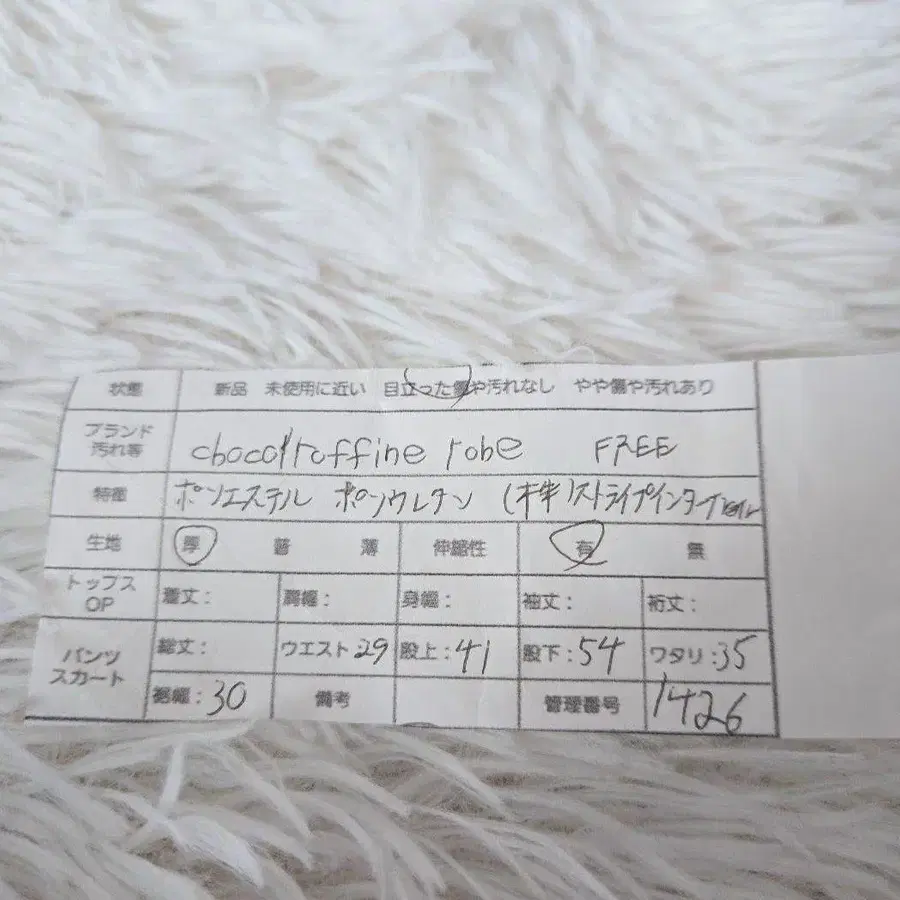 状態 新品 未使用に近い 目立った傷や汚れなし やや傷や汚れあり
ブランド 汚れ等 chocol raffine robe FREE
特徴 ポリエステル ポリウレタン ストライプインター
生地 厚 普 薄 伸縮性 有 無
トップス OP 着丈: 肩幅: 身幅: 袖丈: 裄丈:
パンツ スカート 総丈: ウエスト29 股上:41 股下:54 ワタリ:35
裾幅:30 備考 管理番号 1426